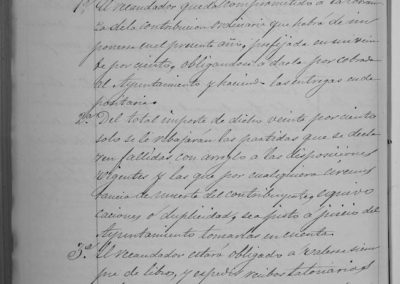 1ª El recaudador queda comprometido a la cobran-
za de la contribucion ordinaria que habra de im-
ponerse en el presente año, prefijada en un vein-
te por ciento, obligandose a darla por cobrada
al Ayuntamiento y haciendo las entregas en de-
positaria.
2ª Del total importe de dicho veinte por ciento
solo se le rebajarán las partidas que se decla-
ren fallidas con arreglo a las disposiciones
vigentes y las que por cualquiera circuns
tancia de muerte del contribuyente, equivo
caciones o duplicidad, sea justo a juicio del
Ayuntamiento tomarlas en cuenta.
3ª El recaudador estará obligado a valerse siem
pre de libro, y expedir recibos talonarios al